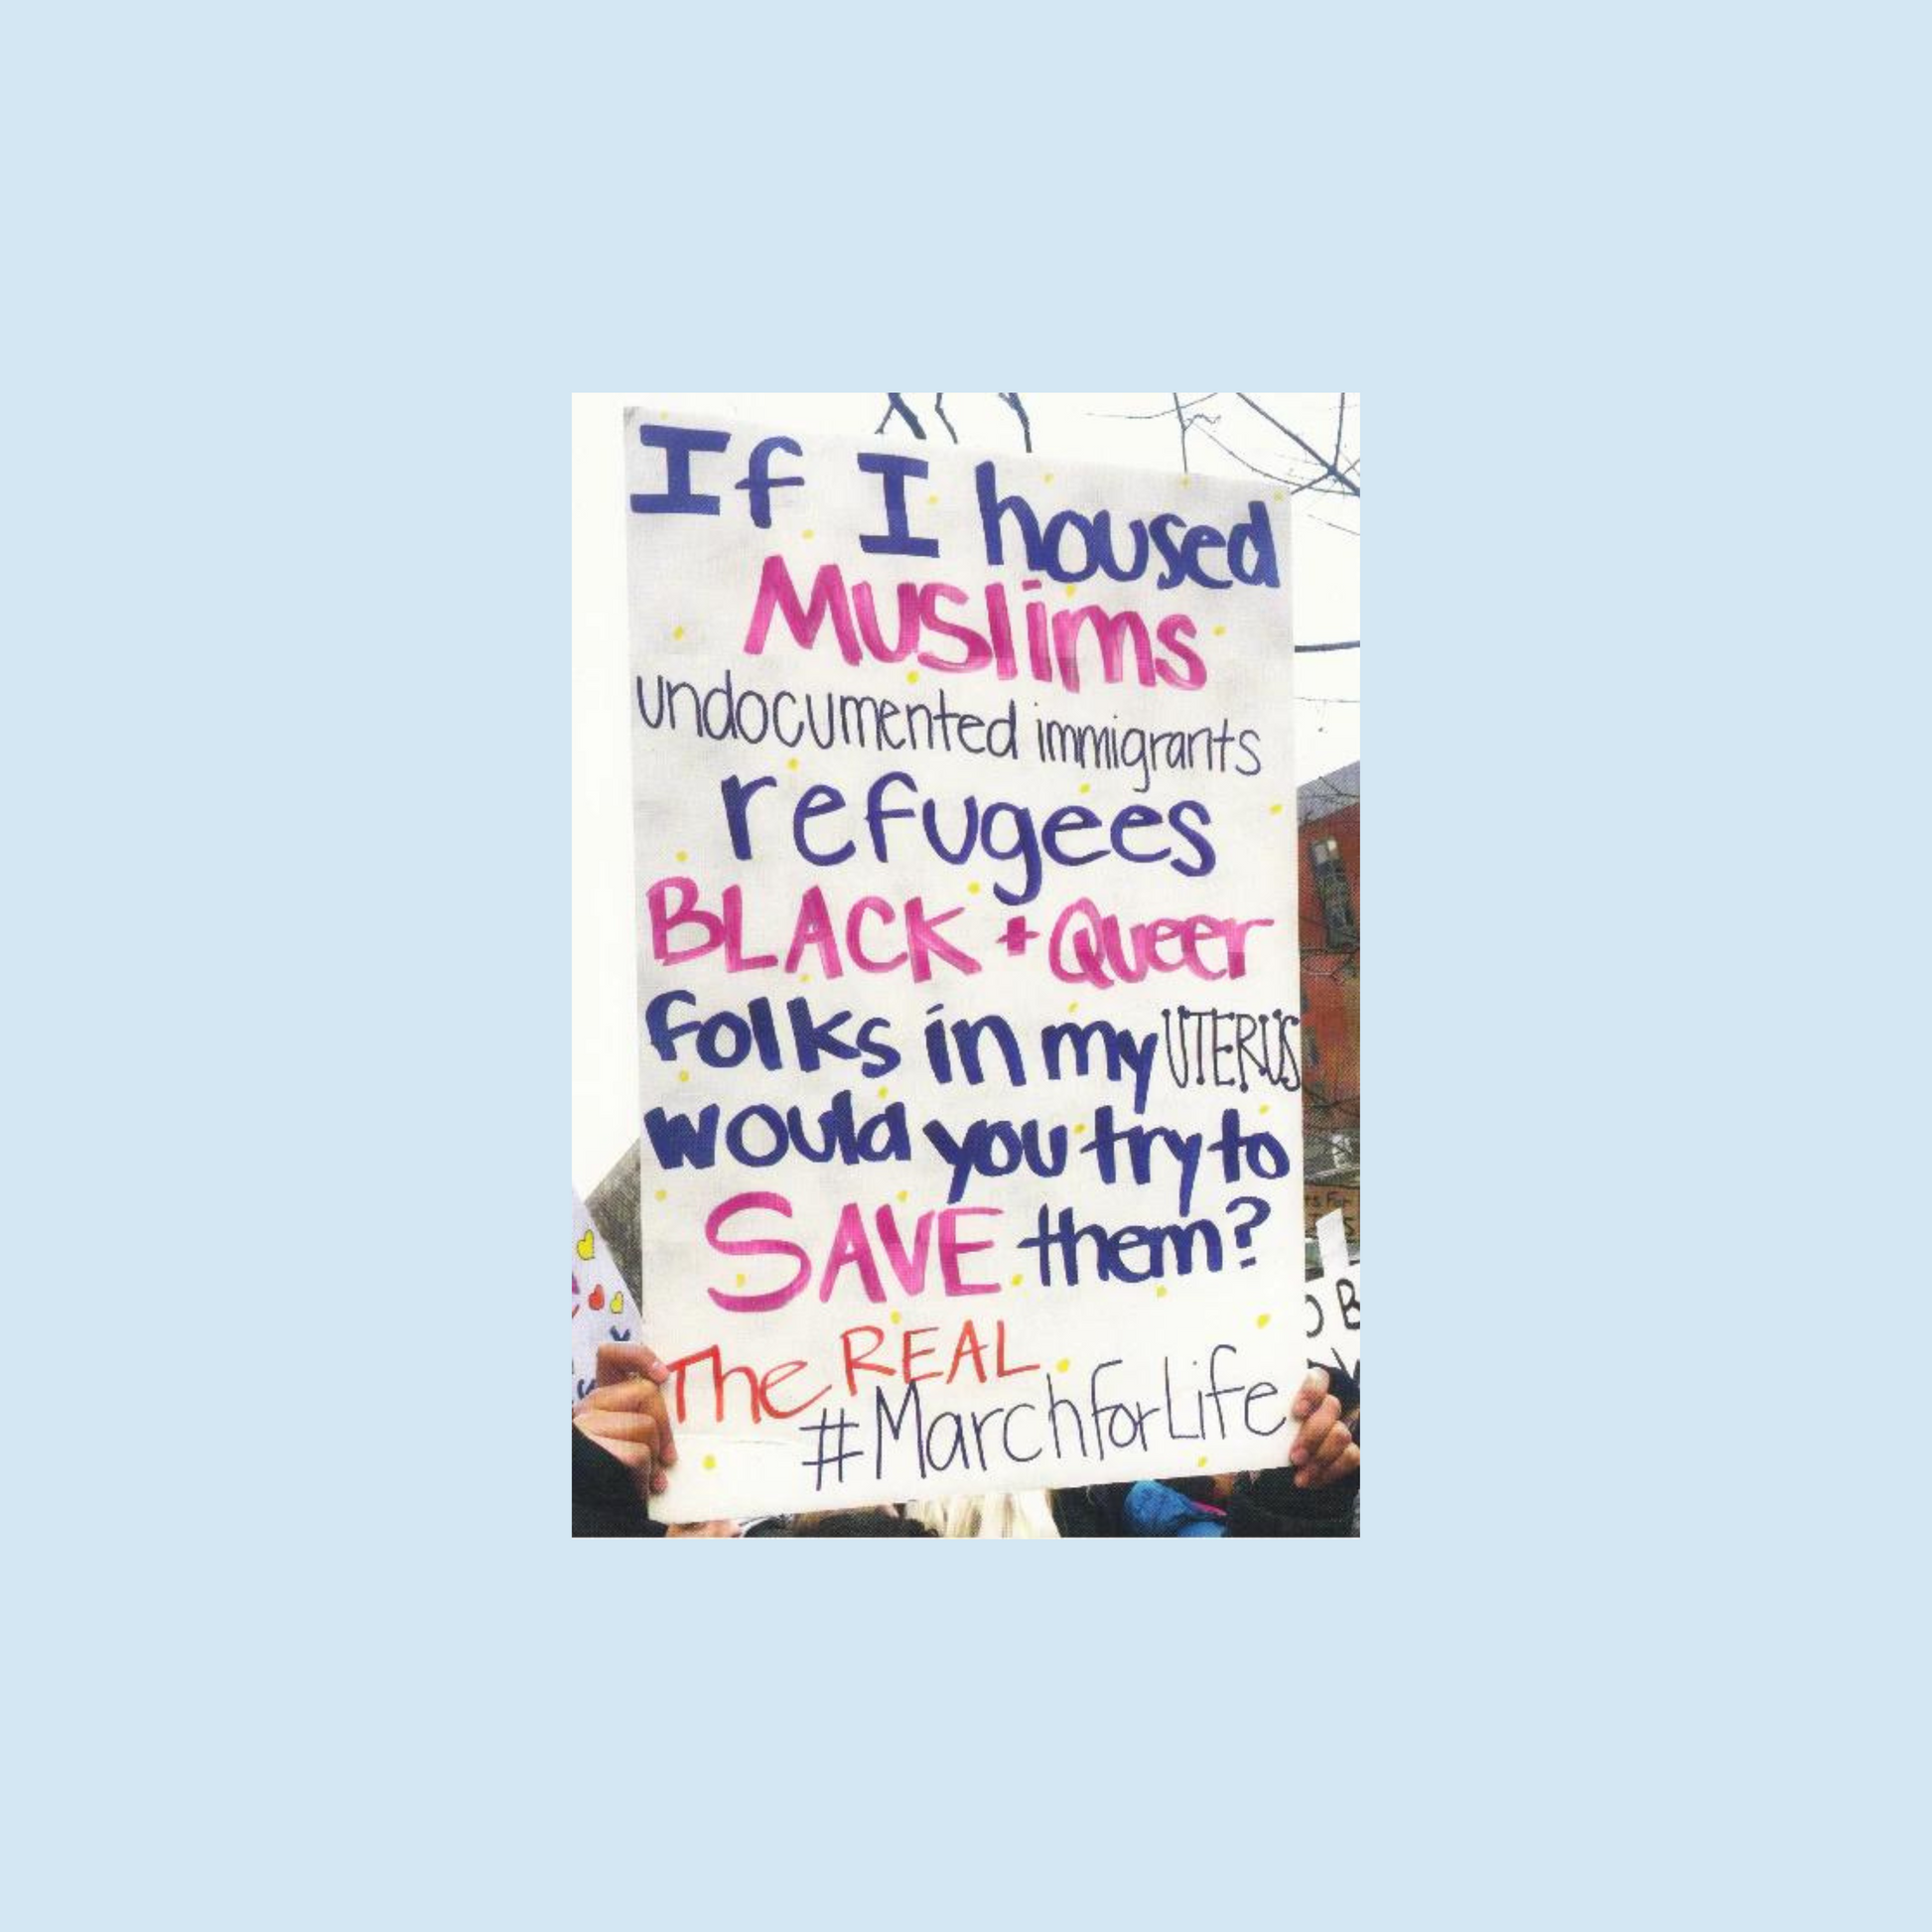 If I housed
Muslims
undocumented immigrants
refugees
BLACK + Queer
folks in my UTERUS
would you try to
SAVE them?
The REAL
#MarchForLife